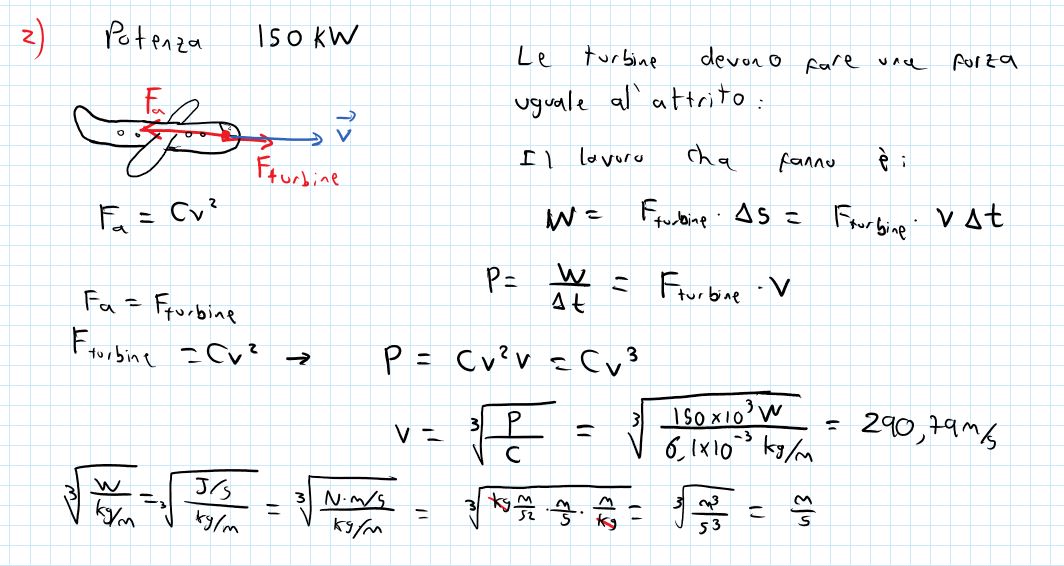 2) Potenza 150 KW
Fa
v⃗
Fturbine
Fa = Cv²
Le turbine devono fare una forza
uguale al' attrito:
Il lavoro cha fanno è:
W = Fturbine · Δs = Fturbine · v Δt
P = W/Δt = Fturbine · v
Fa = Fturbine
Fturbine = Cv² → P = Cv²v = Cv³
v = ∛(P/C) = ∛(150×10³ W / 6,1×10⁻³ kg/m) = 290,79 m/s
∛(W / kg/m) = ∛(J/s / kg/m) = ∛(N·m/s / kg/m) = ∛(kg m/s² · m/s · m/kg) = ∛(m³/s³) = m/s